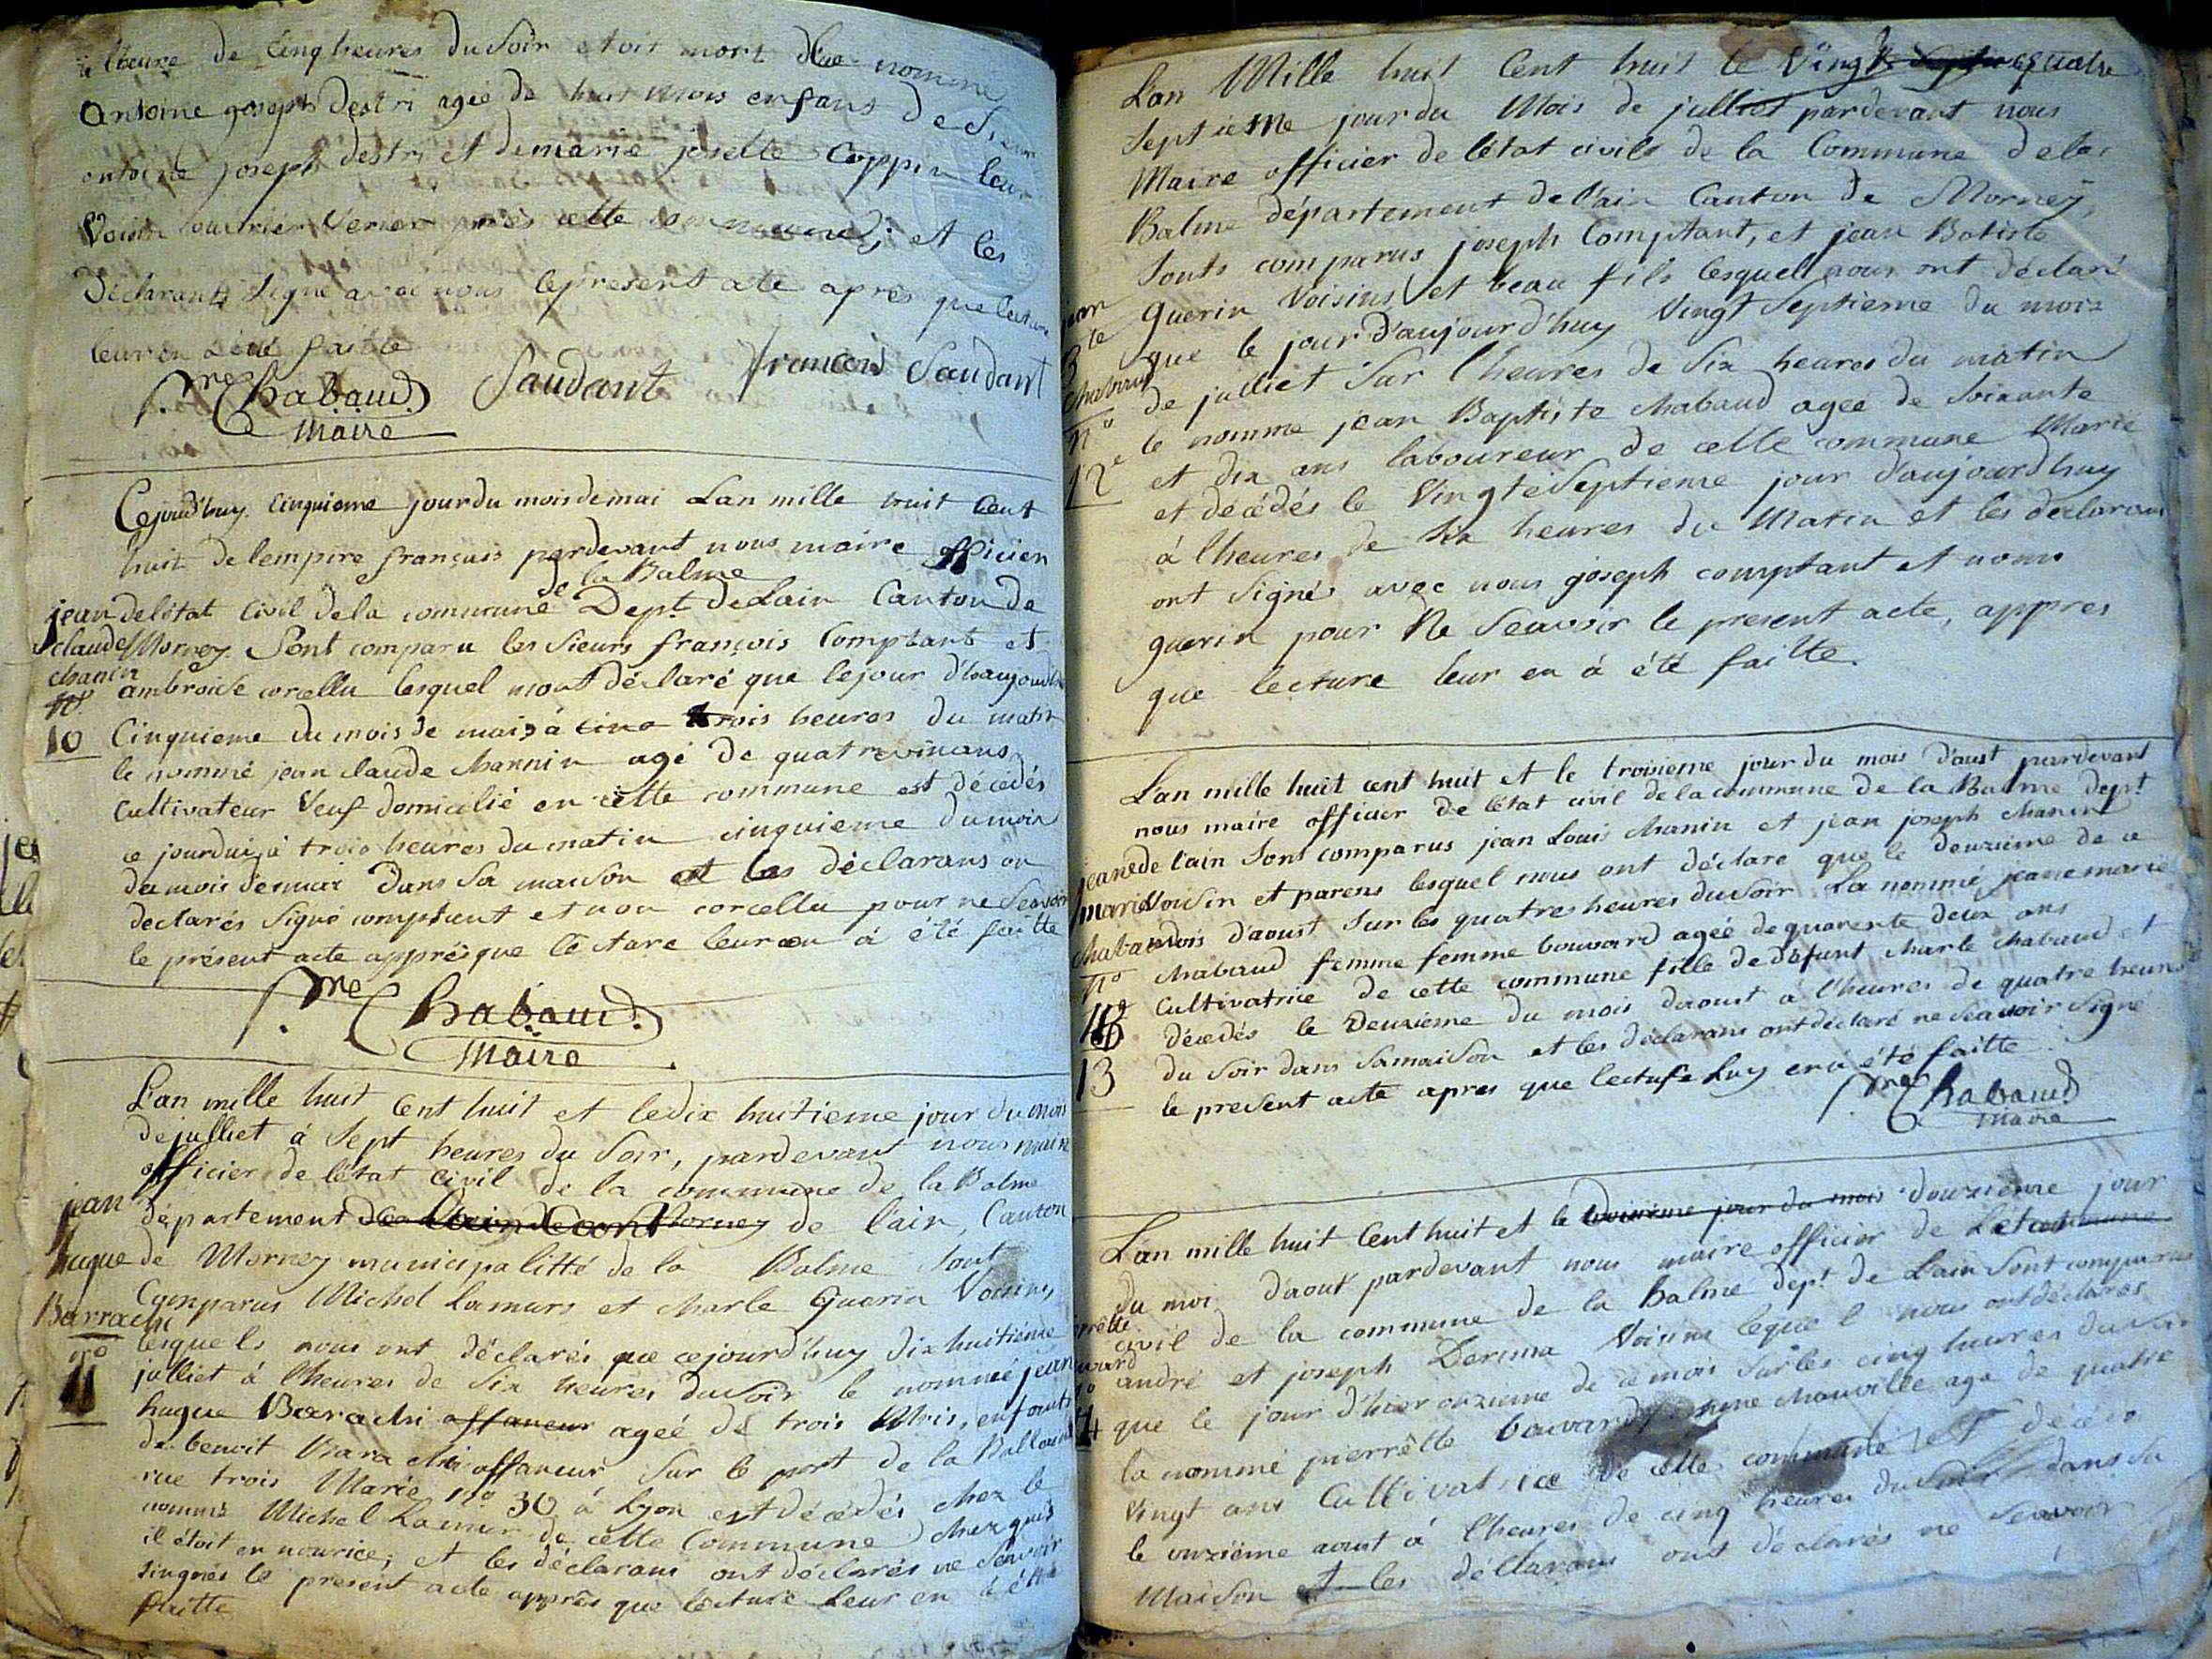 à lheure de Cinq heures du Soir etoit mort nommé
Antoine joseph Destri agée de huit mois enfans de
antoine joseph destri et de marie joselle Coppin leur
Voisin ouvrier Verier cette commune; et les
Déclarants Signé avec nous le present acte après que lecture
leur en a été faitte
Chabaud Saudant francois Saudant
Maire
Cejourd'huy Cinquieme jour du mois de mai Lan mille huit Cent
huit de lempire français pardevant nous maire officier
de la Balme
jean
delétat Civil dela commune Dept. De Lain Canton de
claude
Morney. Sont comparu les Sieurs françois Comptant et
chanin
ambroise corcellu lesquel nout déclaré que lejour d'haujourdhuy
n°
10
Cinquieme du mois de mai à cinq trois heures du matin
le nommé jean claude channin agé de quatrevincans
Cultivateur Veuf domicilié en cette commune est décédés
ce jourdui à trois heures du matin cinquieme du mois
du mois de mai Dans Sa maison et les déclarans on
declarés Signé comptant et non corcellu pour ne Seavoir
le présent acte apprésque lecture leur en a été faitte
Chabaud
Maire
L'an mille huit Cent huit et le dix huitieme jour du mois
de julliet à Sept heures du Soir, pardevant nous maire
officier de létat Civil de la commune de la Balme
jean
département de Lain Cant Morney de l'ain, Canton
hugue
de Morney municipalitté de la Balme Sont
Comparus Michel Lamurs et charle Guerin Voisins,
Barrachi
lesquels nous ont déclarés que cejourd'huy dix huitiéme
n°
11
julliet à l'heures de Six heures du Soir le nommé jean
hugue Barachi affaneur ageé de trois Mois, enfants
de benoit Barachi affaneur Sur le port de la
rue trois Marie n° 30 à Lyon est décédés chez le
nommé Michel Lamur de cette Commune chez qui
il étoit en nourice, et les déclarans ont déclarés ne Seavoir
singnés le present acte apprês que lecture leur en a été
faitte
Lan Mille huit Cent huit le Vingt quatre
Septieme jour du Mois de julliet pardevant nous
Maire officier de létat civile de la Commune dela
Balme département de l'ain Canton de Morney,
Sonts comparus joseph Comptant, et jean Batiste
Guerin Voisins et beau fils lesquel nous ont déclaré
jean
Bte
que le jour d'aujourd'huy Vingt Septieme du mois
chabaud
de julliet Sur l'heures de Six heures du matin
n°
12e
le nomme jean Baptiste chabaud ageé de Soixante
et dix ans laboureur de cette commune Marié
et décédés le Vingt e Septieme jour d'aujourdhuy
à l'heures de Six heures du Matin et les declarans
ont signés avec nous joseph comptant et nom
guerin pour Ne Seavoir le present acte, appres
que lecture leur en à été faitte.
L'an mille huit cent huit et le troisieme jour du mois d'aust pardevant
nous maire officier de létat civil de la commune de la Balme dept
jeane
de l'ain Sont comparus jean Louis chanin et jean joseph chanin
marie
Voisin et parens lesquel nous ont déclare que le deuxieme de ce
chabaud
mois d'aoust Sur les quatres heures du Soir La nommé jeanemarie
n°
chabaud femme femme bouvard ageé de quarente deux ans
Cultivatrice de cette commune fille de défunt charle chabaud et
13
décedés le Deuxieme du mois daoust à l'heures de quatre heures
du Soir dans Sa maison et les declarans ont déclaré ne Seavoir Signé
le present acte apres que lecture Luy en à été faitte
Chabaud
Maire
Lan mille huit Cent huit et le troisieme jour du mois douzieme jour
du moi d'aout pardevant nous maire officier de Létat commune
civil de la commune de la Balme dept. de Lain Sont comparus
andré et joseph Deruma Voisins lequel nous ont déclarés
14
que le jour d'hier onzieme de ce mois Sur les cinq heures du soir
la nommé pierrêtte bouvard age de quatre
Vingt ans Cultivatrice de cette commune et décédé
le onzieme aout à l'heures de cinq heures du Soir dans Sa
Maison et les déclarans ont déclarés ne Seavoir